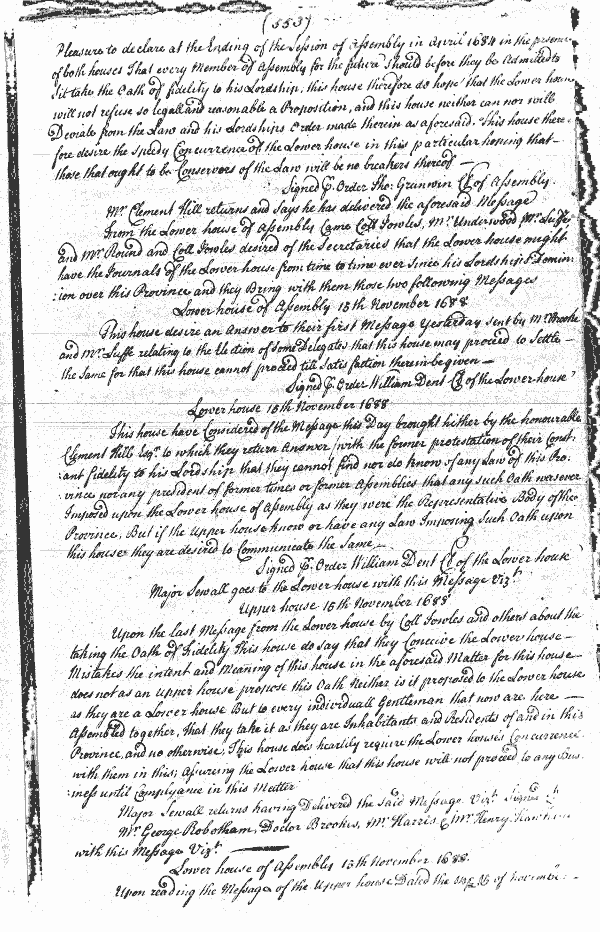 (553)
Pleasure to declare at the Ending of the Session of Assembly in April 1684 in the presence
of both houses That every Member of Assembly for the future should before they be Admitted to
Sit take the Oath of fidelity to his Lordship, this house therefore do hope that the Lower house
will not refuse so legall and reasonable a Proposition, and this house neither can nor will
Deviate from the Law and his Lordships Order made therein as aforesaid. This house there
fore desire the speedy Concurrence of the Lower house in this particular hoping that
those that ought to be Conservors of the Law will be no breakers thereof
Signed P. Order Tho: Grunwin Cl of Assembly.
Mr. Clement Hill returns and says he has delivered the aforesaid Message
From the Lower house of Assembly Came Coll Jowles, Mr. Underwood Mr. Luffe
and Mr. Round and Coll Jowles desired of the Secretaries that the Lower house might
have the Journals of the Lower house from time to time ever Since his Lordships Domin:
:ion over this Province and they Bring with them those two following Messages
Lower house of Assembly 15th November 1688
This house desire an Answer to their first Message Yesterday sent by Mr. Brooke
and Mr. Luffe relating to the Election of some Delegates that this house may proceed to Settle
the Same for that this house cannot proceed till Satisfaction therein be given
Signed P. Order William Dent Cl of the Lower house
Lower house 15th November 1688
This house have Considered of the Message this Day brought hither by the honourable
Clement Hill Esqr. to which they return Answer (with the former protestation of their Const:
:ant fidelity to his Lordship that they cannot find nor do know of any Law of this Pro:
:vince nor any president of former times or former Assemblies that any such Oath was ever
Imposed upon the Lower house of Assembly as they were the Representative Body of the
Province, But if the Upper house know or have any Law Imposing such Oath upon
this house they are desired to Communicate the Same
Signed P. Order William Dent Cl of the Lower house
Major Sewall goes to the Lower house with this Message Vizt.
Upper house 15th November 1688
Upon the last Message from the Lower house by Coll Jowles and others about the
taking the Oath of Fidelity This house do say that they Conceive the Lower house
Mistakes the intent and Meaning of this house in the aforesaid Matter for this house
does not as an upper house propose this Oath Neither is it proposed to the Lower house
as they are a Lower house But to every individuall Gentleman that now are here
Assembled together, that they take it as they are Inhabitants and Residents of and in this
Province, and no otherwise, This house does heartily require the Lower houses Concurrence
with them in this; Assuring the Lower house that this house will not proceed to any Bus:
:iness until Complyance in this Matter
Major Sewall returns having Delivered the said Message Vizt. Signed
Mr. George Robotham, Doctor Brookes, Mr. Harris & Mr. Henry
with this Message Vizt.
Lower house of Assembly 15th November 1688.
Upon reading the Message of the Upper house Dated the of November